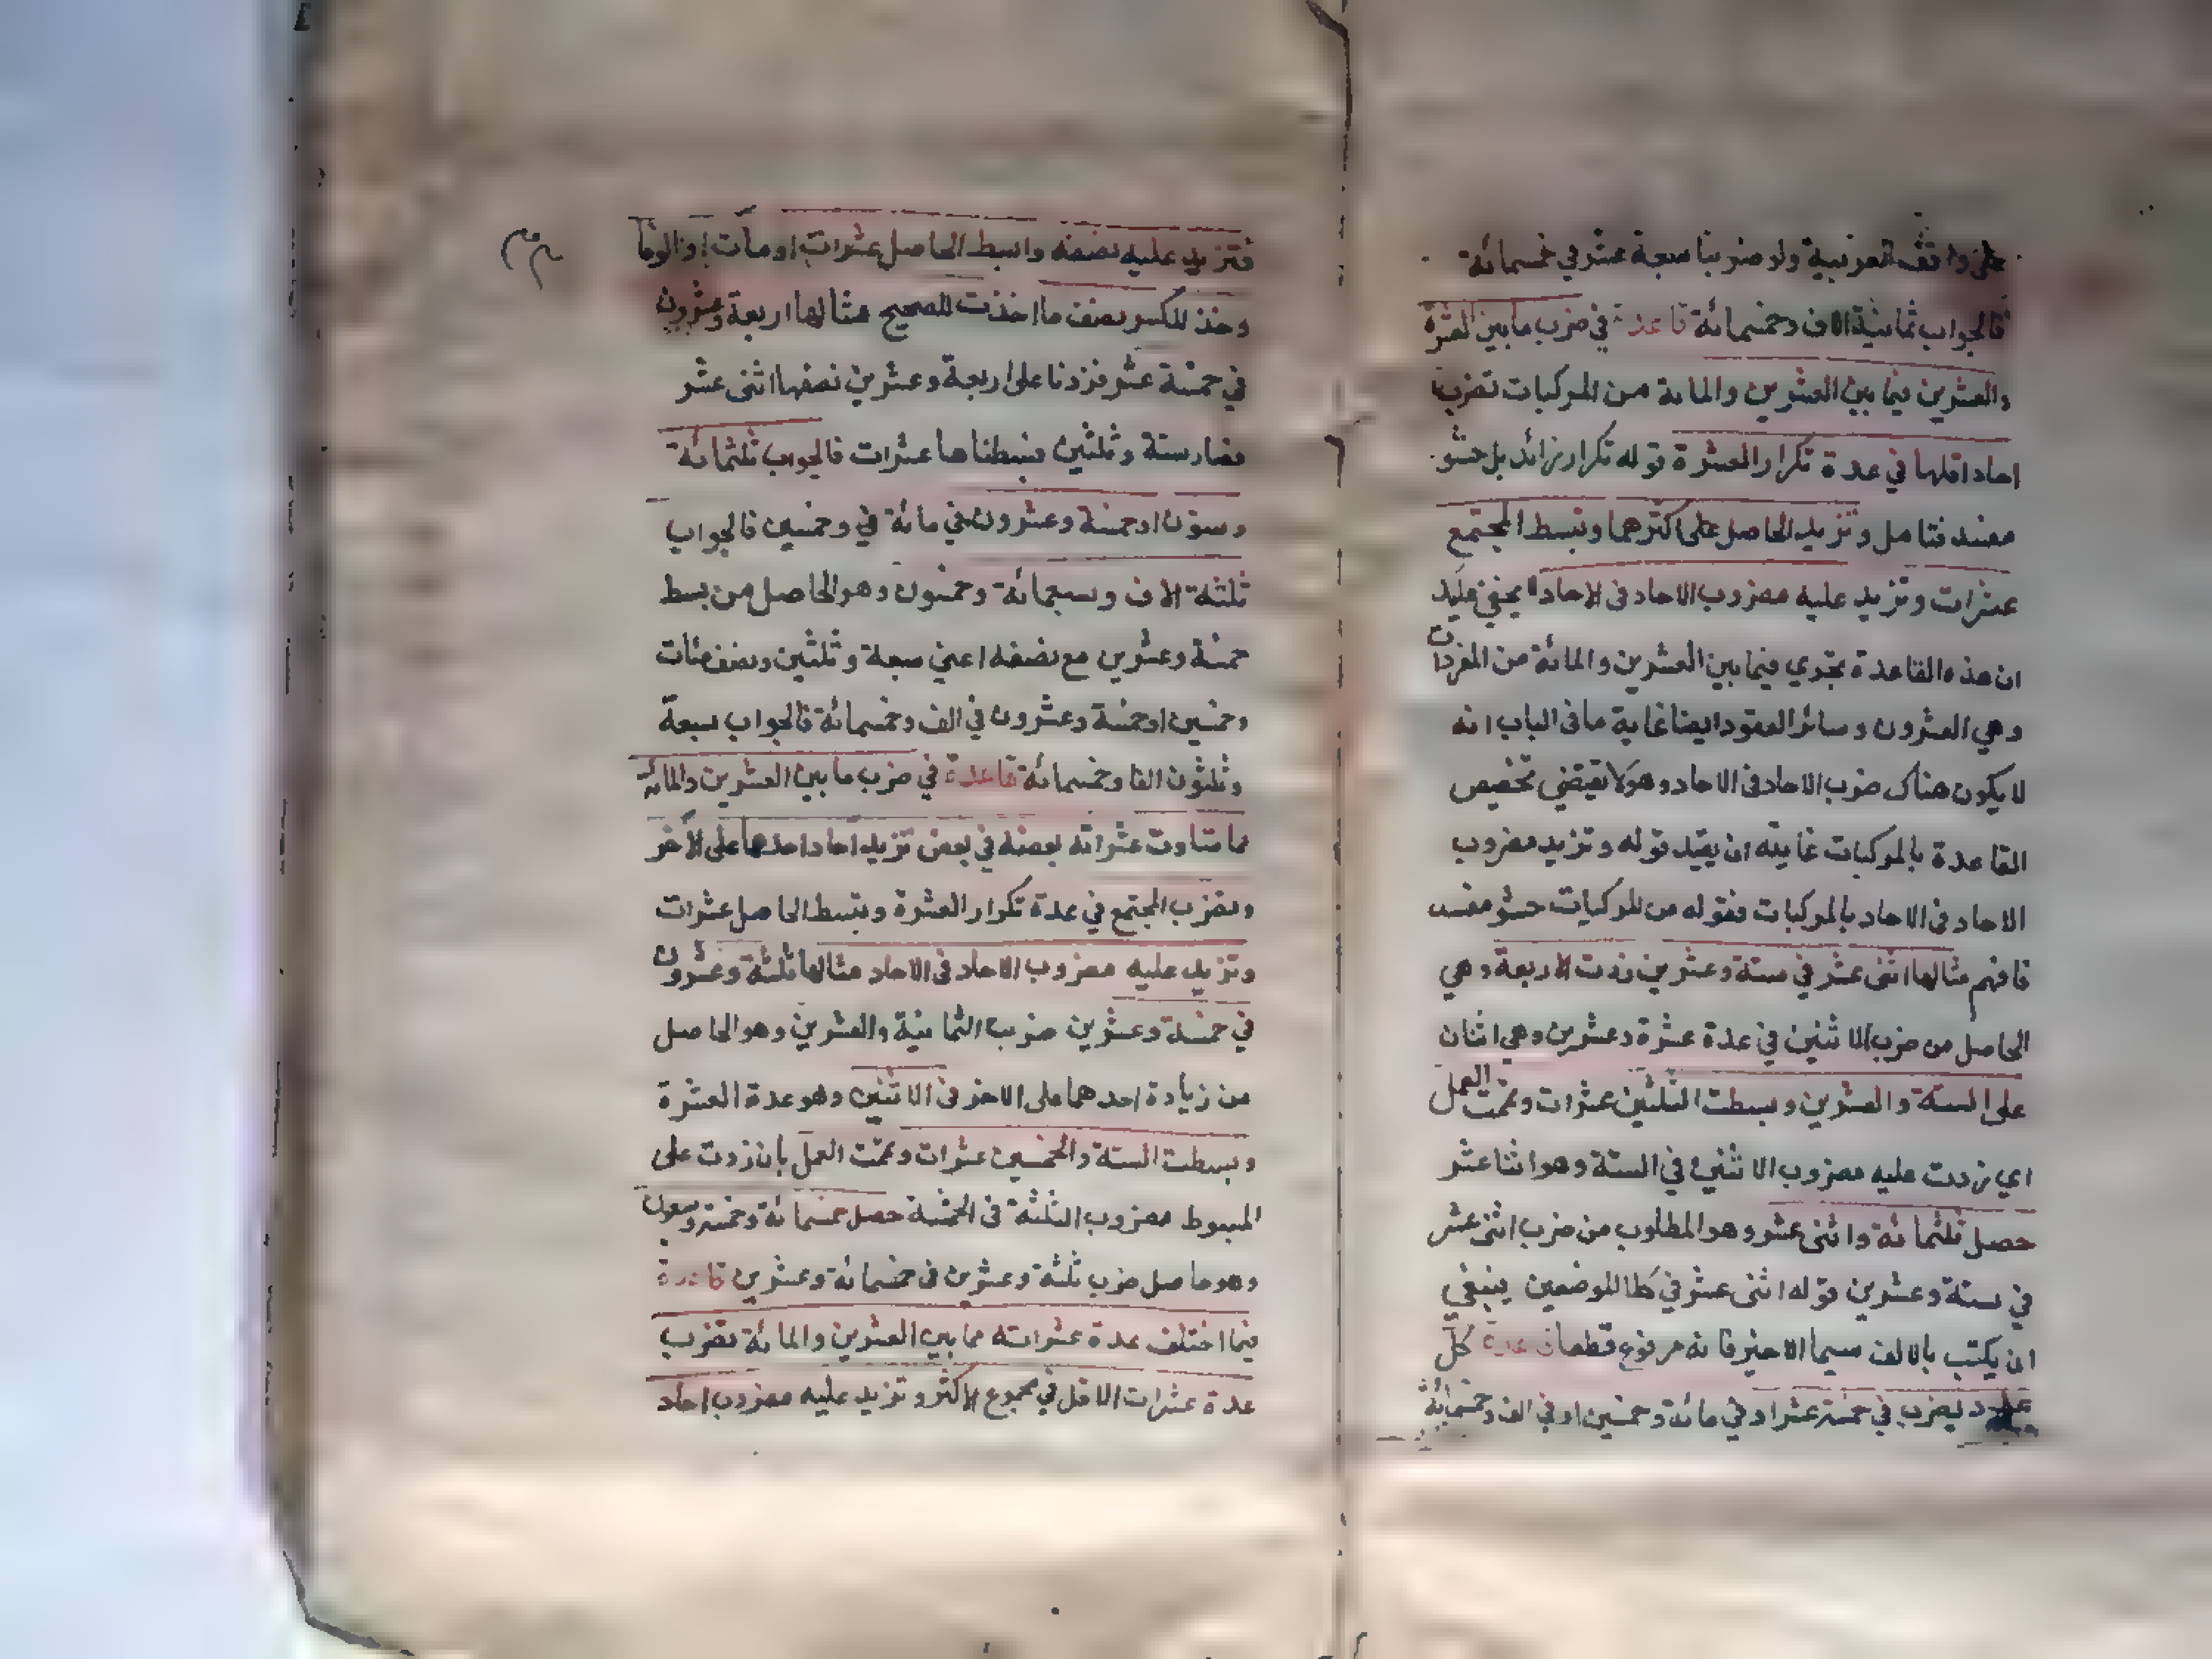 ولو ضربنا سبعة عشر في خمسمائة
فالجواب ثمانية الاف وخمسمائة قاعدة في ضرب ما بين العشرة
والعشرين فيما بين العشرين والمائة من المركبات تضرب
احاد اقلها في عدة تكرار العشرة قوله تكرار زائد بل حشو
مفسد فتامل وتزيد الحاصل على اكثرهما وتبسط المجتمع
عشرات وتزيد عليه مضروب الاحاد في الاحاد يخفى عليك
ان هذه القاعدة تجري فيما بين العشرين والمائة من المفردات
وهي العشرون وسائر العقود ايضا غاية ما في الباب انه
لا يكون هناك ضرب الاحاد في الاحاد وهو لا يقتضي تخصيص
القاعدة بالمركبات غايته ان يقيد قوله وتزيد مضروب
الاحاد في الاحاد بالمركبات فقوله من المركبات حشو مفسد
فافهم مثالها اثنى عشر في ستة وعشرين زدت الاربعة وهي
الحاصل من ضرب الاثنين في عدة عشرة وعشرين وهي اثنان
على الستة والعشرين وبسطت الثلثين عشرات وتممت العمل
اي زدت عليه مضروب الاثنين في الستة وهو اثنا عشر
حصل ثلثمائة واثنى عشر وهو المطلوب من ضرب اثنى عشر
في ستة وعشرين قوله اثنى عشر في كلا الموضعين ينبغي
ان يكتب بالالف سيما الاخير فانه مرفوع قطعا عدة كل
يضرب في خمسة عشر او في مائة وخمسين او في الف وخمسمائة
فتزيد عليه نصفه وابسط الحاصل عشرات او مآت او الوفا
وخذ للكسر نصف ما اخذت للصحيح مثالها اربعة وعشرون
في خمسة عشر فزدنا على اربعة وعشرين نصفها اثنى عشر
فصار ستة وثلثين فبسطناها عشرات فالجواب ثلثمائة
وستون او خمسة وعشرون في مائة في وخمسين فالجواب
ثلثة الاف وسبعمائة وخمسون وهو الحاصل من بسط
خمسة وعشرين مع نصفه اعني سبعة وثلثين ونصف مئات
وخمسين او خمسة وعشرون في الف وخمسمائة فالجواب سبعة
وثلثون الفا وخمسمائة قاعدة في ضرب ما بين العشرين والمائة
مما تساوت عشراته بعضه في بعض تزيد احاد احدهما على الآخر
وتضرب المجتمع في عدة تكرار العشرة وتبسط الحاصل عشرات
وتزيد عليه مضروب الاحاد في الاحاد مثالها ثلثة وعشرون
في خمسة وعشرين ضرب الثمانية والعشرين وهو الحاصل
من زيادة احدهما على الاخر في الاثنين وهو عدة العشرة
وبسطت الستة والخمسين عشرات وتممت العمل بان زدت على
المبسوط مضروب الثلثة في الخمسة حصل خمسمائة وخمسة وسبعون
وهو حاصل ضرب ثلثة وعشرين في خمسمائة وعشرين قاعدة
فيما اختلف عدة عشراته مما بين العشرين والمائة تضرب
عدة عشرات الاقل في مجموع الاكثر وتزيد عليه مضروب احاد